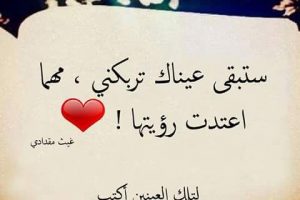 ستبقى عيناك تربكني ، مهما
اعتدت رؤيتها ! ❤
غيث مقدادي
لتلك العينين أكتب